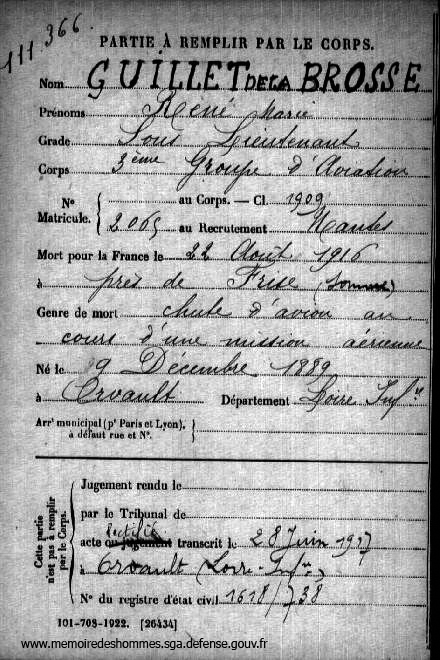 111 366
PARTIE À REMPLIR PAR LE CORPS.
Nom GUILLET DE LA BROSSE
Prénoms René Marie
Grade Sous Lieutenant
Corps 3ème Groupe d'Aviation
N° Matricule. { au Corps. — Cl. 1909
2065 au Recrutement Nantes
Mort pour la France le 22 Août 1916
à près de Frise (Somme)
Genre de mort chute d'avion au
cours d'une mission aérienne
Né le 9 Décembre 1889
à Orvault Département Loire Infre
Arrt municipal (pr Paris et Lyon), à défaut rue et N°. {
Cette partie n'est pas à remplir par le Corps. {
Jugement rendu le
par le Tribunal de
rectifié
acte ou jugement transcrit le 28 Juin 1917
à Orvault (Loire-Infre)
N° du registre d'état civil 1618/738
101-708-1922. [26434]
www.memoiredeshommes.sga.defense.gouv.fr